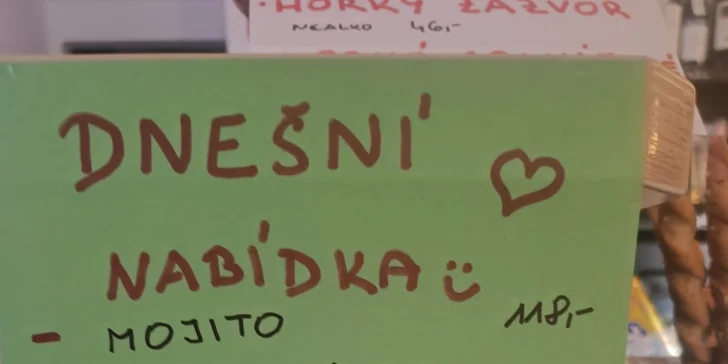 · HORKÝ ZÁZVOR
NEALKO 46,-
DNEŠNÍ
NABÍDKA
- MOJITO 118,-